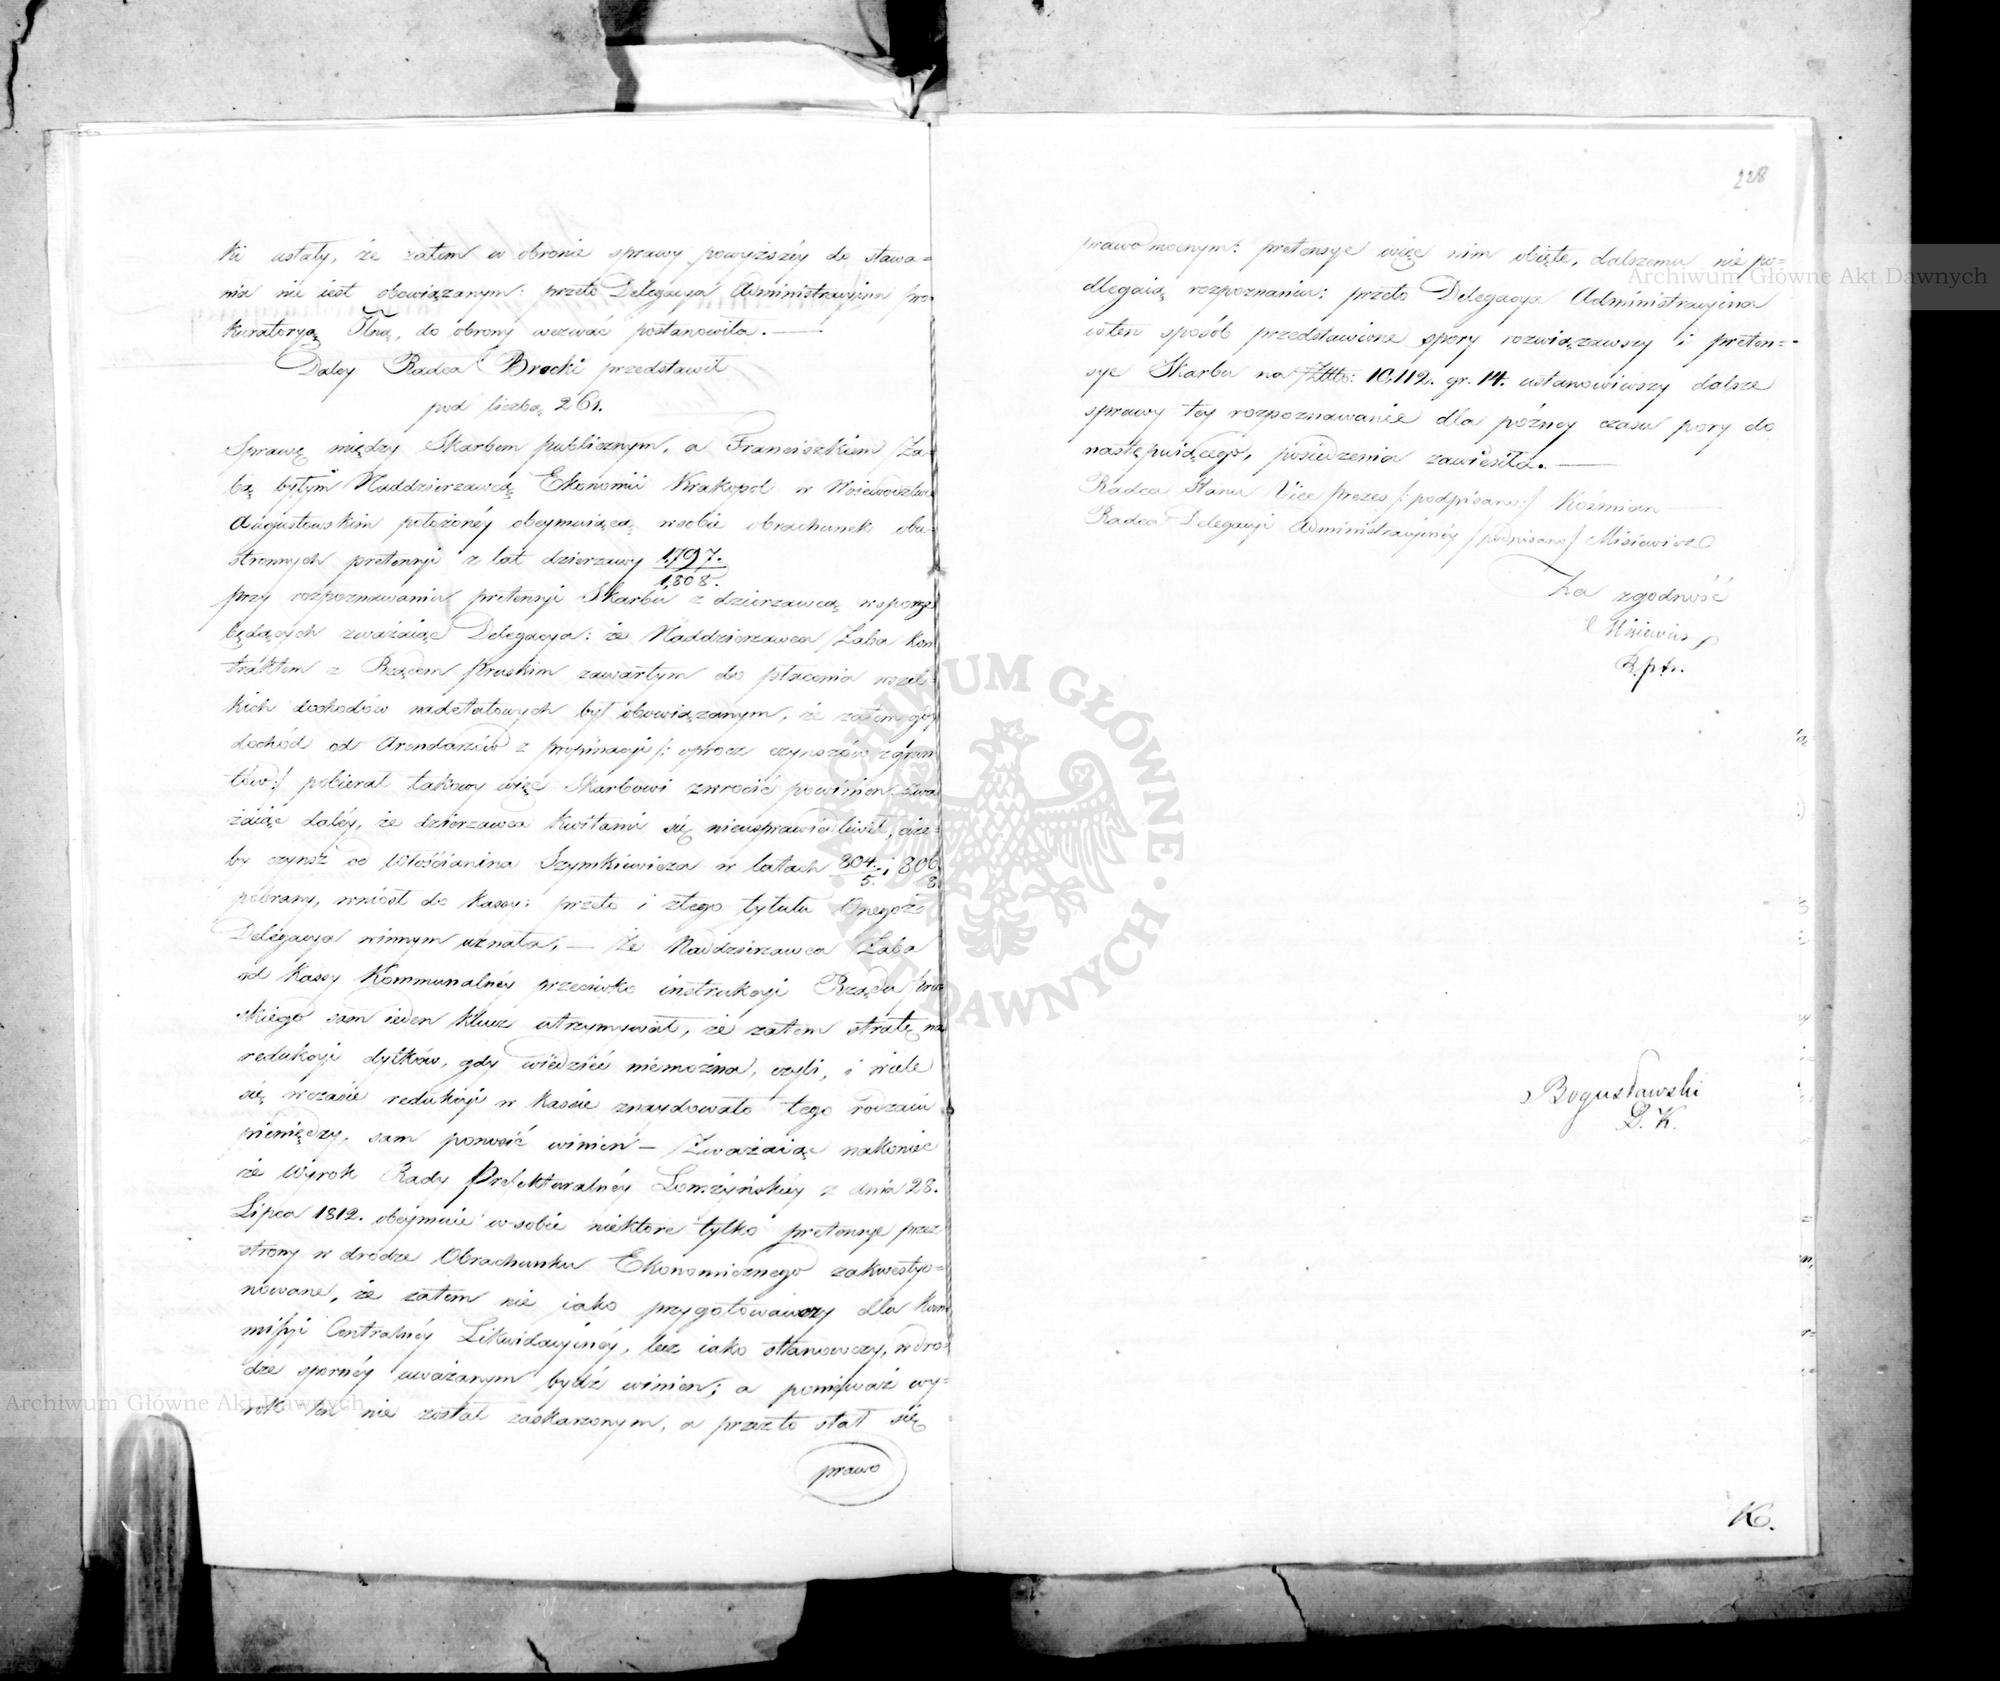 ki ustały, że zatem w obronie sprawy powyższéy do stawa=
nia nie iest obowiązanym: przeto Delegacya Administracyina pro=
kuratoryą Glną, do obrony wezwać postanowiła. —
Daley Radca Brocki przedstawił
pod liczbą 261.
Sprawę między Skarbem publicznym, a Franciszkiem Ża=
bą byłym Naddzierzawcą Ekonomii Krakopol w Woiewództwie
Augustowskim położonéy obeymuiącą w sobie obrachunek obu=
stronnych pretensyi z lat dzierzawy 1797./1808.
przy rozpoznawaniu pretensyi Skarbu z dzierzawcą w sporze
będących zważaiąc Delegacya: że Naddzierzawca Żaba kon
traktem z Rządem Pruskim zawartym do płacenia wszel=
kich dochodów nadetatowych był obowiązanym, że zatem gdy
dochód od Arendarzów z propinacyi /: oprocz czynszów z grun
tów:/ pobierał takowy więc Skarbowi zwrocić powinien zwa
żaiąc daléy, że dzierzawca kwitami się nieusprawiedliwił, aże=
by czynsz od Włościanina Szymkiewicza w latach 804./5. i 806/8.
pobrany, wniosł do kassy: przeto i z tego tytułu Onegoż
Delegacya winnym uznała; — Że Naddzierzawca Żaba
od kassy Kommunalnéy przeciwko instrukcyi Rządu Pru
skiego sam ieden klucz utrzymywał, że zatem stratę na
redukcyi dytków, gdy wiedzieć niemożna, czyli, i wiele
się w czasie redukcyi w kassie znaydowało tego rodzaiu
pieniędzy, sam ponosić winien — Zważaiąc nakoniec
że Wyrok Rady Prefekturalnéy Łomżyńskiéy z dnia 28.
Lipca 1812. obeymuie w sobie niektóre tylko pretensye przez
strony w drodze Obrachunku Ekonomicznego zakwestyo=
nowane, że zatem nie iako przygotowawczy dla Kom
missyi Centralnéy Likwidacyinéy, lecz iako stanowczy, w dro=
dze spornéy uważanym bydź winien; a ponieważ wy=
rok ten nie został zaskarżonym, a przeto stał się
prawo
228
prawomocnym: pretensye więc nim obięte, dalszemu nie po=
dlegaią rozpoznaniu; przeto Delegacya Administracyina
w ten sposób przedstawione spory rozwiązawszy i preten=
sye Skarbu na Złto: 10,112. gr. 14. ustanowiwszy dalsze
sprawy tey rozpoznawanie dla późney czasu pory do
następuiącego, posiedzenia zawiesiła. —
Radca Stanu Vice Prezes /: podpisano:/ Koźmian —
Radca Delegacyi Administracyinéy /podpisano/ Misiewicz
Za zgodność
Misiewicz
Bogusławski
D. K.
K.
Archiwum Główne Akt Dawnych
Archiwum Główne Akt Dawnych
Archiwum Główne Akt Dawnych
ARCHIWUM GŁÓWNE AKT DAWNYCH